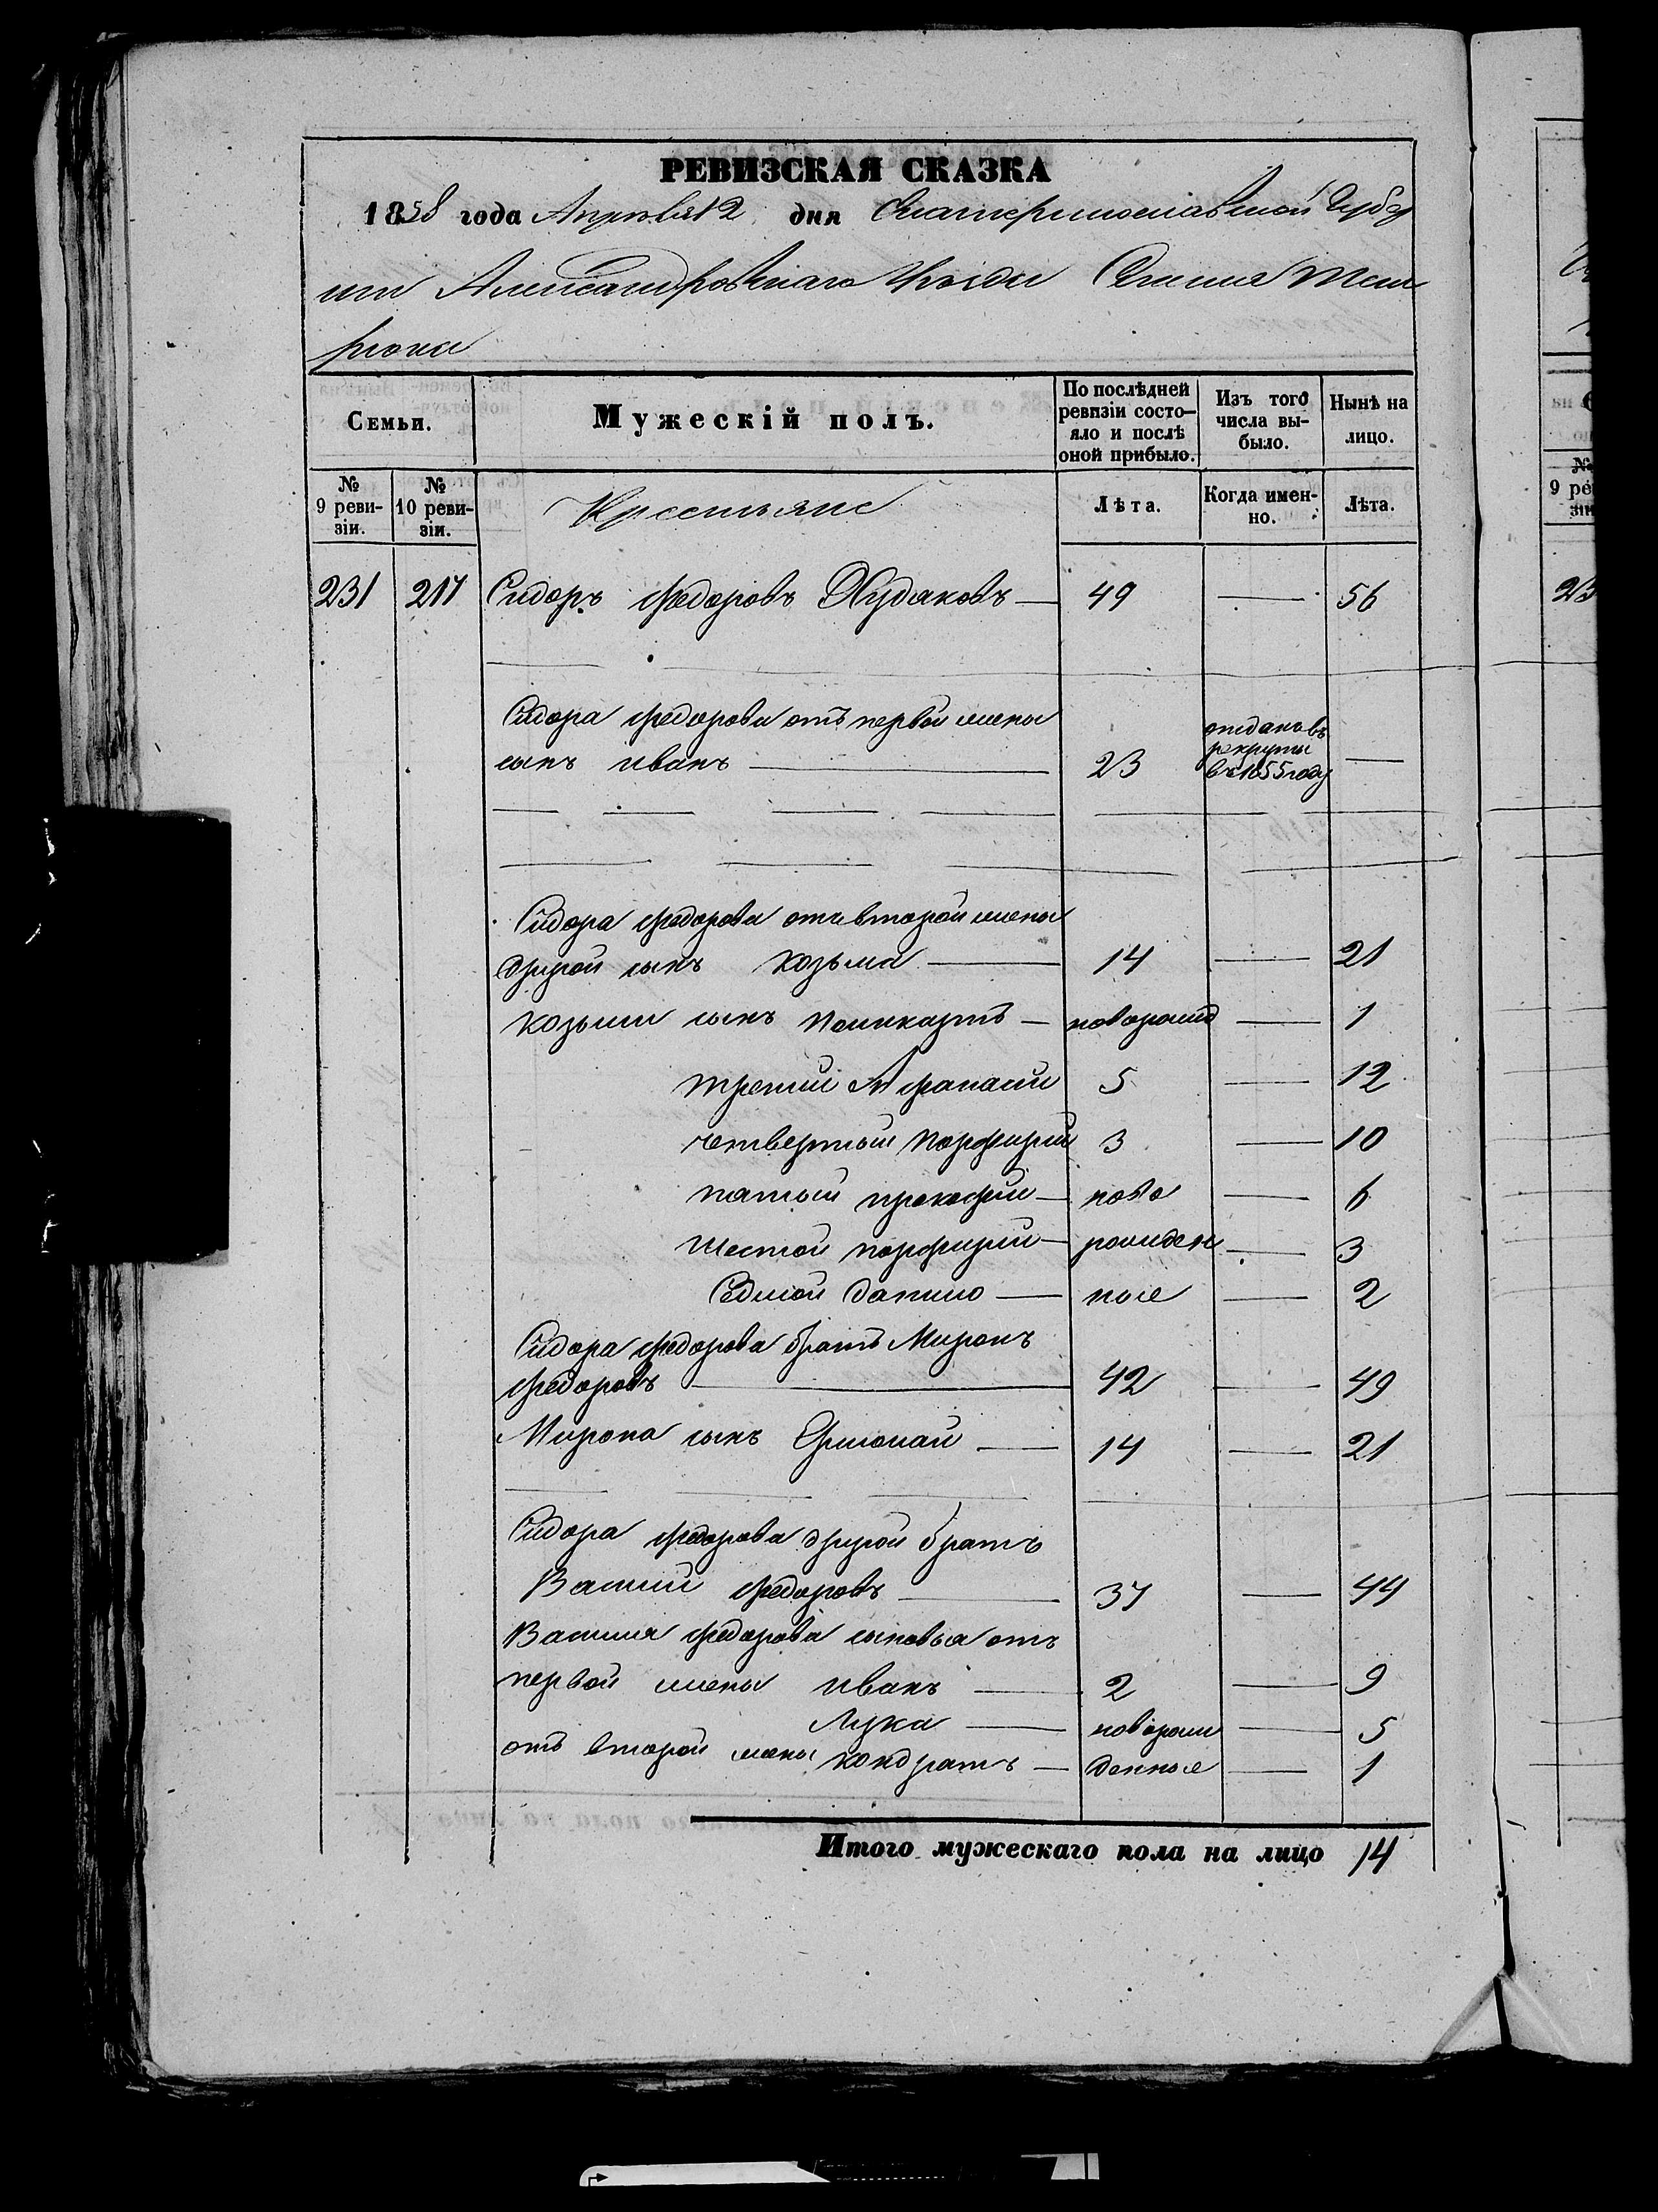 РЕВИЗСКАЯ СКАЗКА
1858 года Апреля 12 дня Екатеринославской Губер
нии Александровскаго Уезда Селения Тем
рюка
Семьи.
Мужескій полъ.
По послѣдней ревизіи состо-
яло и послѣ
оной прибыло.
Изъ того
числа вы-
было.
Нынѣ на
лицо.
№
9 реви-
зіи.
№
10 реви-
зіи.
Крестьяне
Лѣта.
Когда имен-
но.
Лѣта.
231 217 Сидоръ Федоровъ Худаковъ — 49 — 56
Сидора Федорова отъ первой жены
сынъ иванъ — 23 отданъ въ рекруты въ 1855 году —
Сидора Федорова отъ второй жены
другой сынъ козьма — 14 — 21
козьми сынъ поликарпъ — новорожд — 1
третий Афанасий 5 — 12
четвертый порфирий 3 — 10
пятый прокофий — ново — 6
шестой порфирий — рожден — 3
Седмой данило — ные — 2
Сидора Федорова братъ Миронъ
Федоровъ — 42 — 49
Мирона сынъ Ермолай — 14 — 21
Сидора Федорова другой братъ
Василий Федоровъ — 37 — 44
Василия Федорова сыновья отъ
первой жены иванъ — 2 — 9
Лука —оворож — 5
отъ второй жены кондратъ — денные — 1
Итого мужескаго пола на лицо 14
№
9 ре
зіи
23